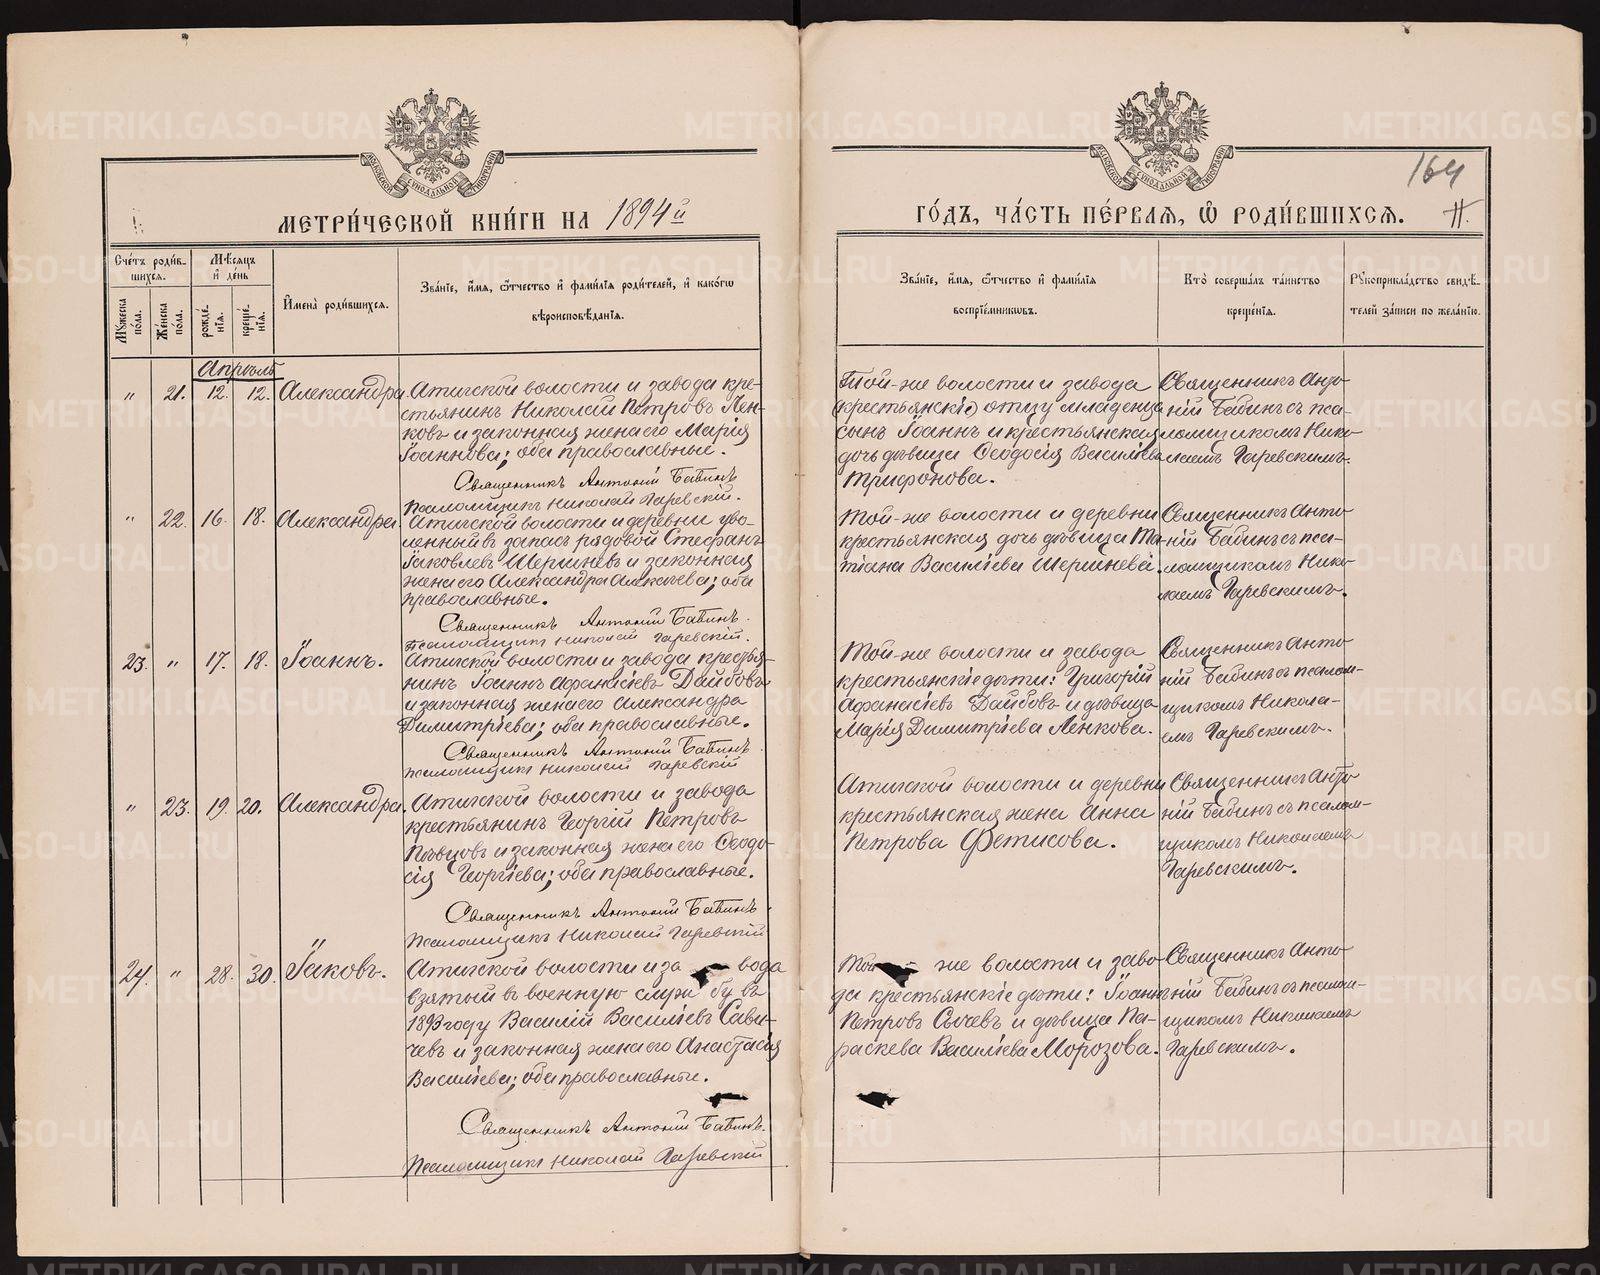 МЕТРИ́ЧЕСКОЙ КНИ́ГИ НА 1894й
ГО́ДЪ, ЧА́СТЬ ПЕ́РВАѦ, Ѡ҆ РОДИ́ВШИХСѦ.
164
Сче́тъ роди́в-
шихсѧ.
Мѣ́сѧцъ
и҆ де́нь
Мꙋ́жеска
по́ла.
Же́нска
по́ла.
рожде́-
нїѧ.
креще́-
нїѧ.
И҆мена̀ роди́вшихсѧ.
Зва́нїе, и҆́мѧ, ѻ҆́тчество и҆ фами́лїѧ роди́телей, и҆ како́гѡ
вѣроисповѣ́данїѧ.
Зва́нїе, и҆́мѧ, ѻ҆́тчество и҆ фами́лїѧ
воспрїе́мникѡвъ.
Кто̀ соверша́лъ та́инство
креще́нїѧ.
Рꙋкоприкла́дство свидѣ́-
телей за́писи по жела́нїю.
Апрѣль
" 21. 12. 12. Александра.
Атигской волости и завода кре-
стьянинъ Николай Петровъ Лен-
ковъ и законная жена его Марія
Іоаннова; оба православные.
Священникъ Антоній Бабинъ
Псаломщикъ Николай Гаревскій.
Той-же волости и завода
(крестьянскіе) отцу младенца
сынъ Іоаннъ и крестьянская
дочь дѣвица Ѳеодосія Васильева
Трифонова.
Священникъ Анто-
ній Бабинъ съ пса-
ломщикомъ Нико-
лаемъ Гаревскимъ.
" 22. 16. 18. Александра.
Атигской волости и деревни уво-
ленный въ запасъ рядовой Стефанъ
Іаковлевъ Шершневъ и законная
жена его Александра Алексѣева; оба
православные.
Священникъ Антоній Бабинъ.
Псаломщикъ Николай Гаревскій.
Той-же волости и деревни
крестьянская дочь дѣвица Та-
тіана Васильева Шершнева.
Священникъ Анто-
ній Бабинъ съ пса-
ломщикомъ Нико-
лаемъ Гаревскимъ.
23. " 17. 18. Іоаннъ.
Атигской волости и завода крестья-
нинъ Іоаннъ Афанасіевъ Дайбовъ
и законная жена его Александра
Димитріева; оба православные.
Священникъ Антоній Бабинъ.
Псаломщикъ Николай Гаревскій
Той-же волости и завода
крестьянскіе дѣти: Григорій
Афанасіевъ Дайбовъ и дѣвица
Марія Димитріева Ленкова.
Священникъ Анто-
ній Бабинъ съ псалом-
щикомъ Никола-
емъ Гаревскимъ.
" 23. 19. 20. Александра.
Атигской волости и завода
крестьянинъ Георгій Петровъ
Пѣвцовъ и законная жена его Ѳеодо-
сія Георгіева; оба православные.
Священникъ Антоній Бабинъ
Псаломщикъ Николай Гаревскій
Атигской волости и деревни
крестьянская жена Анна
Петрова Фетисова.
Священникъ Анто-
ній Бабинъ съ псалом-
щикомъ Николаемъ
Гаревскимъ.
24. " 28. 30. Іаковъ.
Атигской волости и за вода
взятый въ военную служ бу въ
1893 году Василій Васильевъ Сави-
чевъ и законная жена его Анастасія
Васильева; оба православные.
Священникъ Антоній Бабинъ.
Псаломщикъ Николай Гаревскій
Той же волости и заво-
да крестьянскіе дѣти: Іоаннъ
Петровъ Сычевъ и дѣвица Па-
раскева Васильева Морозова.
Священникъ Анто-
ній Бабинъ съ псалом-
щикомъ Николаемъ
Гаревскимъ.
METRIKI.GASO-URAL.RU